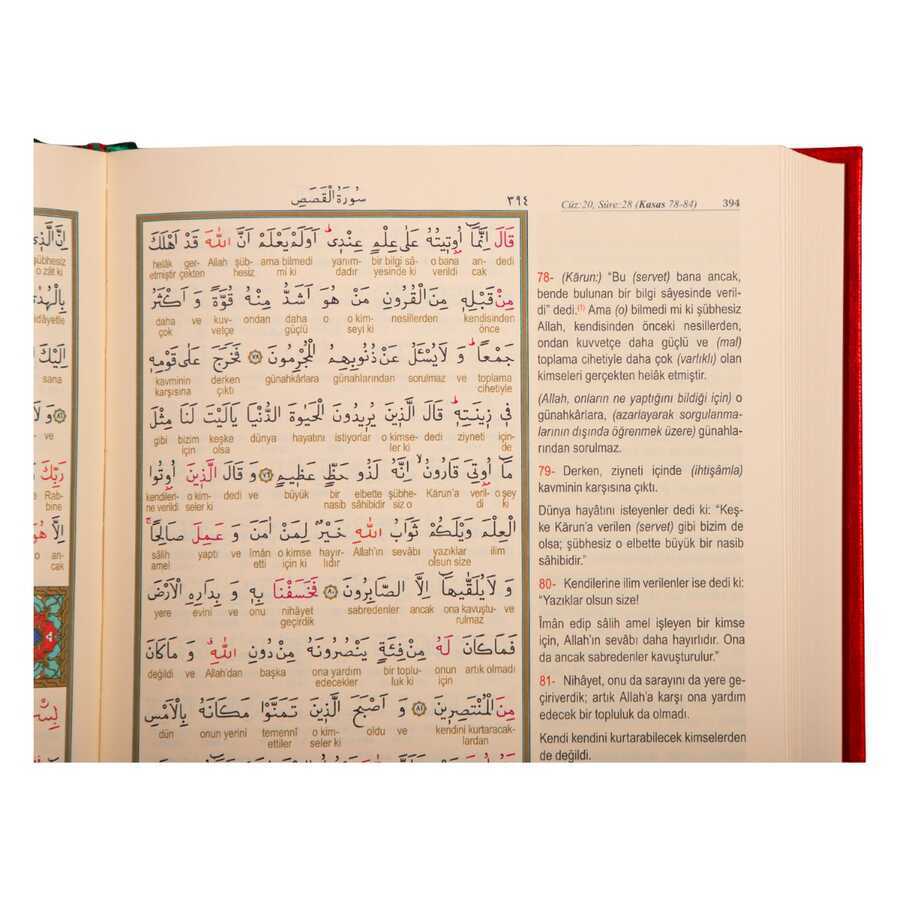 سُورَةُ الْقَصَصِ
٣٩٤
Cüz:20, Sûre:28 (Kasas 78-84) 394
قَالَ اِنَّمَٓا اُو۫ت۪يتُهُ عَلٰى عِلْمٍ عِنْد۪يۜ اَوَلَمْ يَعْلَمْ اَنَّ اللّٰهَ قَدْ اَهْلَكَ
helâk ger- Allah şüb- ama bilmedi yanım- bir bilgi sâ- o bana an- dedi
etmiştir çekten hesiz mi ki dadır yesinde ki verildi cak
مِنْ قَبْلِه۪ مِنَ الْقُرُونِ مَنْ هُوَ اَشَدُّ مِنْهُ قُوَّةً وَ اَكْثَرُ
daha ve kuv- ondan daha o o kim- nesillerden kendisinden
çok vetçe güçlü seyi ki önce
جَمْعًاۜ وَ لَا يُسْـَٔلُ عَنْ ذُنُوبِهِمُ الْمُجْرِمُونَ ﴿٧٨﴾ فَخَرَجَ عَلٰى قَوْمِه۪
kavminin derken günahkârlara günahlarından sorulmaz ve toplama
karşısına çıktı cihetiyle
ف۪ي ز۪ينَتِه۪ۜ قَالَ الَّذ۪ينَ يُر۪يدُونَ الْحَيٰوةَ الدُّنْيَا يَا لَيْتَ لَنَا مِثْلَ
gibi bizim keşke dünya hayatını istiyorlar o kimse- dedi ziyneti için-
olsa ler ki de
مَٓا اُو۫تِيَ قَارُونُۙ اِنَّهُ لَذُو حَظٍّ عَظ۪يمٍ ﴿٧٩﴾ وَ قَالَ الَّذ۪ينَ اُو۫تُوا
kendileri- o kim- dedi ve büyük bir elbette şübhe- Kârun'a veril- o şey
ne verildi seler ki nasib sâhibidir siz o di ki
الْعِلْمَ وَيْلَكُمْ ثَوَابُ اللّٰهِ خَيْرٌ لِمَنْ اٰمَنَ وَ عَمِلَ صَالِحًاۚ
sâlih yaptı ve îmân o kimse hayır- Allah'ın sevâbı yazıklar ilim
amel etti için ki lıdır olsun size
وَ لَا يُلَقّٰيهَٓا اِلَّا الصَّابِرُونَ ﴿٨٠﴾ فَخَسَفْنَا بِه۪ وَ بِدَارِهِ الْاَرْضَ
yere evini ve onu nihâyet sabredenler ancak ona kavuştu- ve
geçirdik rulmaz
فَمَا كَانَ لَهُ مِنْ فِئَةٍ يَنْصُرُونَهُ مِنْ دُونِ اللّٰهِۗ وَ مَا كَانَ
değildi ve Allah'dan başka ona yardım bir toplu- onun artık olmadı
edecekler luk ki için
مِنَ الْمُنْتَصِر۪ينَ ﴿٨١﴾ وَ اَصْبَحَ الَّذ۪ينَ تَمَنَّوْا مَكَانَهُ بِالْاَمْسِ
dün onun yerini temennî o kim- oldu ve kendini kurtaracak-
ettiler seler ki lardan
78- (Kârun:) “Bu (servet) bana ancak,
bende bulunan bir bilgi sâyesinde veril-
di” dedi.(1) Ama (o) bilmedi mi ki şübhesiz
Allah, kendisinden önceki nesillerden,
ondan kuvvetçe daha güçlü ve (mal)
toplama cihetiyle daha çok (varlıklı) olan
kimseleri gerçekten helâk etmiştir.
(Allah, onların ne yaptığını bildiği için) o
günahkârlara, (azarlayarak sorgulanma-
larının dışında öğrenmek üzere) günahla-
rından sorulmaz.
79- Derken, ziyneti içinde (ihtişâmla)
kavminin karşısına çıktı.
Dünya hayatını isteyenler dedi ki: “Keş-
ke Kârun'a verilen (servet) gibi bizim de
olsa; şübhesiz o elbette büyük bir nasib
sâhibidir.”
80- Kendilerine ilim verilenler ise dedi ki:
“Yazıklar olsun size!
Îmân edip sâlih amel işleyen bir kimse
için, Allah'ın sevâbı daha hayırlıdır. Ona
da ancak sabredenler kavuşturulur.”
81- Nihâyet, onu da sarayını da yere ge-
çiriverdik; artık Allah'a karşı ona yardım
edecek bir topluluk da olmadı.
Kendi kendini kurtarabilecek kimselerden
de değildi.